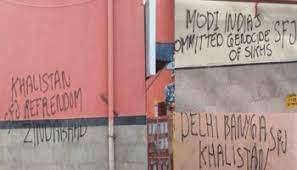 KHALISTAN
REFRENDOM
ZINDABAAD
MODI INDIA'S
OMMITTED GENOCIDE
OF SIKHS
SFJ
DELHI BANNGA
KHALISTAN
SFJ